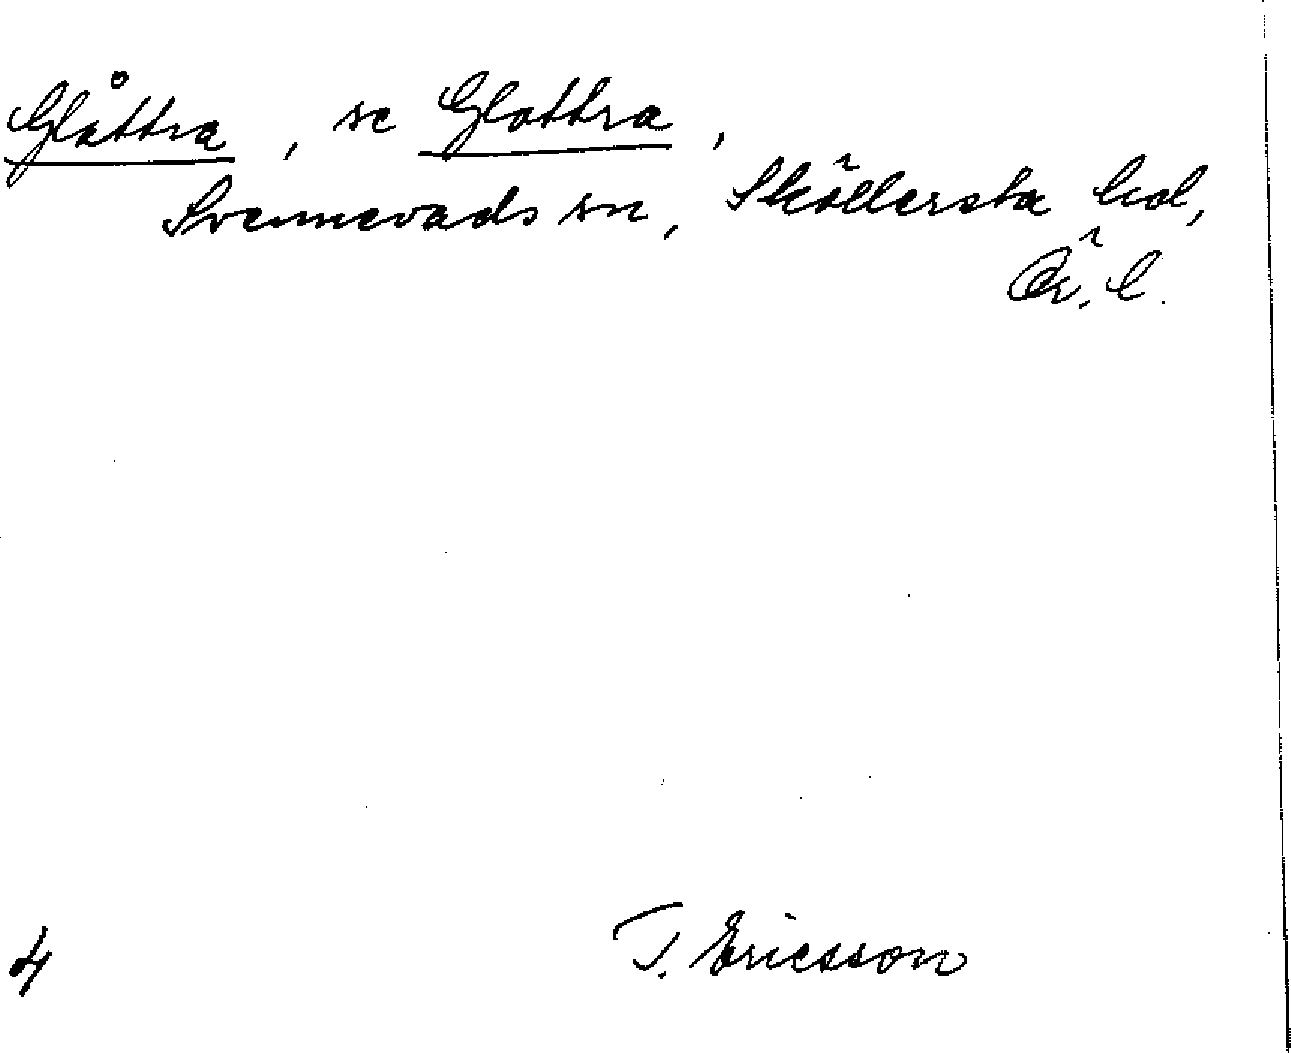 Glåttra, se Glottra,
Svennevads sn, Sköllersta hd,
Ör. l.
4 T. Ericsson